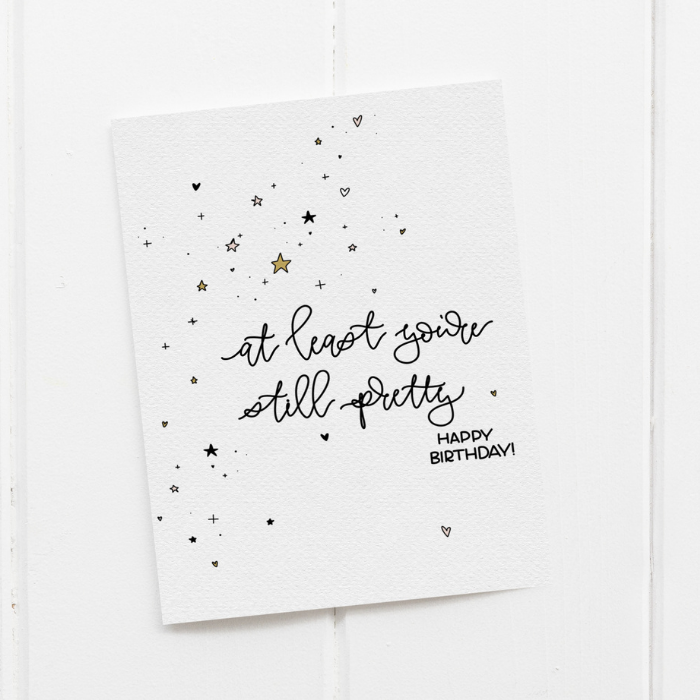 at least you're
still pretty
HAPPY
BIRTHDAY!